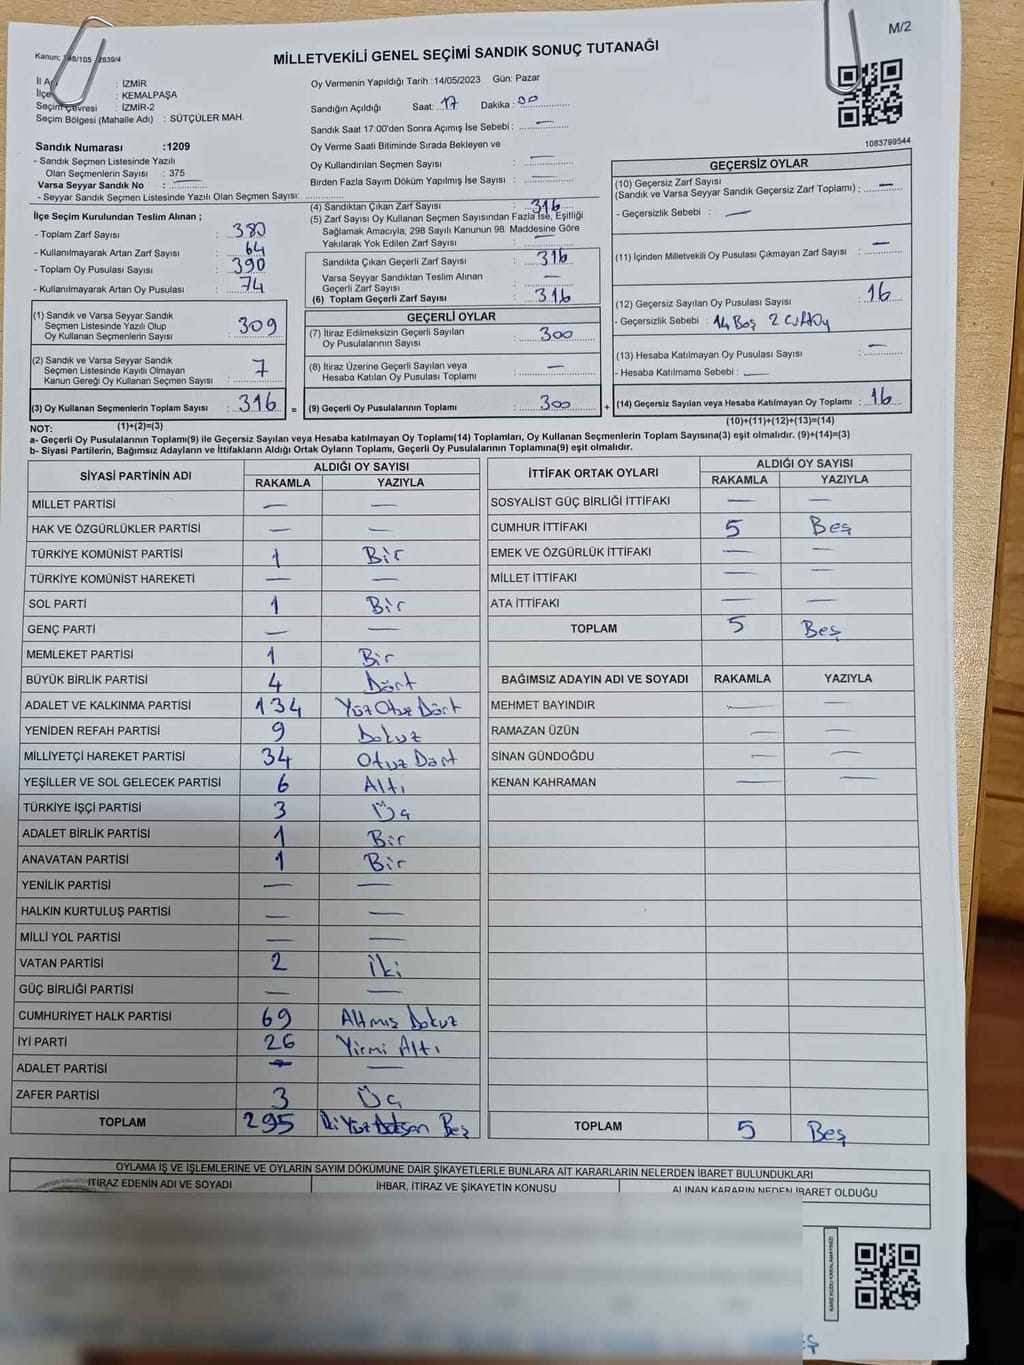 M/2
MİLLETVEKİLİ GENEL SEÇİMİ SANDIK SONUÇ TUTANAĞI
İl : İZMİR
İlçe : KEMALPAŞA
Seçim Çevresi : İZMİR-2
Seçim Bölgesi (Mahalle Adı) : SÜTÇÜLER MAH.
Sandık Numarası :1209
- Sandık Seçmen Listesinde Yazılı
Olan Seçmenlerin Sayısı : 375
Varsa Seyyar Sandık No : —
- Seyyar Sandık Seçmen Listesinde Yazılı Olan Seçmen Sayısı:
Oy Vermenin Yapıldığı Tarih :14/05/2023 Gün: Pazar
Sandığın Açıldığı Saat: 17 Dakika : 00
Sandık Saat 17:00'den Sonra Açımış İse Sebebi : —
Oy Verme Saati Bitiminde Sırada Bekleyen ve
Oy Kullandırılan Seçmen Sayısı : —
Birden Fazla Sayım Döküm Yapılmış İse Sayısı : —
1083799544
İlçe Seçim Kurulundan Teslim Alınan ;
- Toplam Zarf Sayısı : 380
- Kullanılmayarak Artan Zarf Sayısı : 64
- Toplam Oy Pusulası Sayısı : 390
- Kullanılmayarak Artan Oy Pusulası : 74
(1) Sandık ve Varsa Seyyar Sandık
Seçmen Listesinde Yazılı Olup
Oy Kullanan Seçmenlerin Sayısı : 309
(2) Sandık ve Varsa Seyyar Sandık
Seçmen Listesinde Kayıtlı Olmayan
Kanun Gereği Oy Kullanan Seçmen Sayısı : 7
(3) Oy Kullanan Seçmenlerin Toplam Sayısı : 316 =
(1)+(2)=(3)
(4) Sandıktan Çıkan Zarf Sayısı : 316
(5) Zarf Sayısı Oy Kullanan Seçmen Sayısından Fazla İse, Eşitliği
Sağlamak Amacıyla; 298 Sayılı Kanunun 98. Maddesine Göre
Yakılarak Yok Edilen Zarf Sayısı : —
Sandıkta Çıkan Geçerli Zarf Sayısı : 316
Varsa Seyyar Sandıktan Teslim Alınan
Geçerli Zarf Sayısı : —
(6) Toplam Geçerli Zarf Sayısı : 316
GEÇERLİ OYLAR
(7) İtiraz Edilmeksizin Geçerli Sayılan
Oy Pusulalarının Sayısı : 300
(8) İtiraz Üzerine Geçerli Sayılan veya
Hesaba Katılan Oy Pusulası Toplamı : —
(9) Geçerli Oy Pusulalarının Toplamı : 300 +
GEÇERSİZ OYLAR
(10) Geçersiz Zarf Sayısı
(Sandık ve Varsa Seyyar Sandık Geçersiz Zarf Toplamı) : —
- Geçersizlik Sebebi : —
(11) İçinden Milletvekili Oy Pusulası Çıkmayan Zarf Sayısı : —
(12) Geçersiz Sayılan Oy Pusulası Sayısı : 16
- Geçersizlik Sebebi : 14 Boş 2 Çift Oy
(13) Hesaba Katılmayan Oy Pusulası Sayısı : —
- Hesaba Katılmama Sebebi : —
(14) Geçersiz Sayılan veya Hesaba Katılmayan Oy Toplamı : 16
(10)+(11)+(12)+(13)=(14)
NOT:
a- Geçerli Oy Pusulalarının Toplamı(9) ile Geçersiz Sayılan veya Hesaba katılmayan Oy Toplamı(14) Toplamları, Oy Kullanan Seçmenlerin Toplam Sayısına(3) eşit olmalıdır. (9)+(14)=(3)
b- Siyasi Partilerin, Bağımsız Adayların ve İttifakların Aldığı Ortak Oyların Toplamı, Geçerli Oy Pusulalarının Toplamına(9) eşit olmalıdır.
SİYASİ PARTİNİN ADI ALDIĞI OY SAYISI
RAKAMLA YAZIYLA
MİLLET PARTİSİ — —
HAK VE ÖZGÜRLÜKLER PARTİSİ — —
TÜRKİYE KOMÜNİST PARTİSİ 1 Bir
TÜRKİYE KOMÜNİST HAREKETİ — —
SOL PARTİ 1 Bir
GENÇ PARTİ — —
MEMLEKET PARTİSİ 1 Bir
BÜYÜK BİRLİK PARTİSİ 4 Dört
ADALET VE KALKINMA PARTİSİ 134 Yüz Otuz Dört
YENİDEN REFAH PARTİSİ 9 Dokuz
MİLLİYETÇİ HAREKET PARTİSİ 34 Otuz Dört
YEŞİLLER VE SOL GELECEK PARTİSİ 6 Altı
TÜRKİYE İŞÇİ PARTİSİ 3 Üç
ADALET BİRLİK PARTİSİ 1 Bir
ANAVATAN PARTİSİ 1 Bir
YENİLİK PARTİSİ — —
HALKIN KURTULUŞ PARTİSİ — —
MİLLİ YOL PARTİSİ — —
VATAN PARTİSİ 2 İki
GÜÇ BİRLİĞİ PARTİSİ — —
CUMHURİYET HALK PARTİSİ 69 Altmış Dokuz
İYİ PARTİ 26 Yirmi Altı
ADALET PARTİSİ — —
ZAFER PARTİSİ 3 Üç
TOPLAM 295 İki Yüz Doksan Beş
İTTİFAK ORTAK OYLARI ALDIĞI OY SAYISI
RAKAMLA YAZIYLA
SOSYALİST GÜÇ BİRLİĞİ İTTİFAKI — —
CUMHUR İTTİFAKI 5 Beş
EMEK VE ÖZGÜRLÜK İTTİFAKI — —
MİLLET İTTİFAKI — —
ATA İTTİFAKI — —
TOPLAM 5 Beş
BAĞIMSIZ ADAYIN ADI VE SOYADI RAKAMLA YAZIYLA
MEHMET BAYINDIR — —
RAMAZAN ÜZÜN — —
SİNAN GÜNDOĞDU — —
KENAN KAHRAMAN — —
TOPLAM 5 Beş
OYLAMA İŞ VE İŞLEMLERİNE VE OYLARIN SAYIM DÖKÜMÜNE DAİR ŞİKAYETLERLE BUNLARA AİT KARARLARIN NELERDEN İBARET BULUNDUKLARI
İTİRAZ EDENİN ADI VE SOYADI İHBAR, İTİRAZ VE ŞİKAYETİN KONUSU ALINAN KARARIN NEDEN İBARET OLDUĞU
KARE KODU KARALAMAYINIZ!